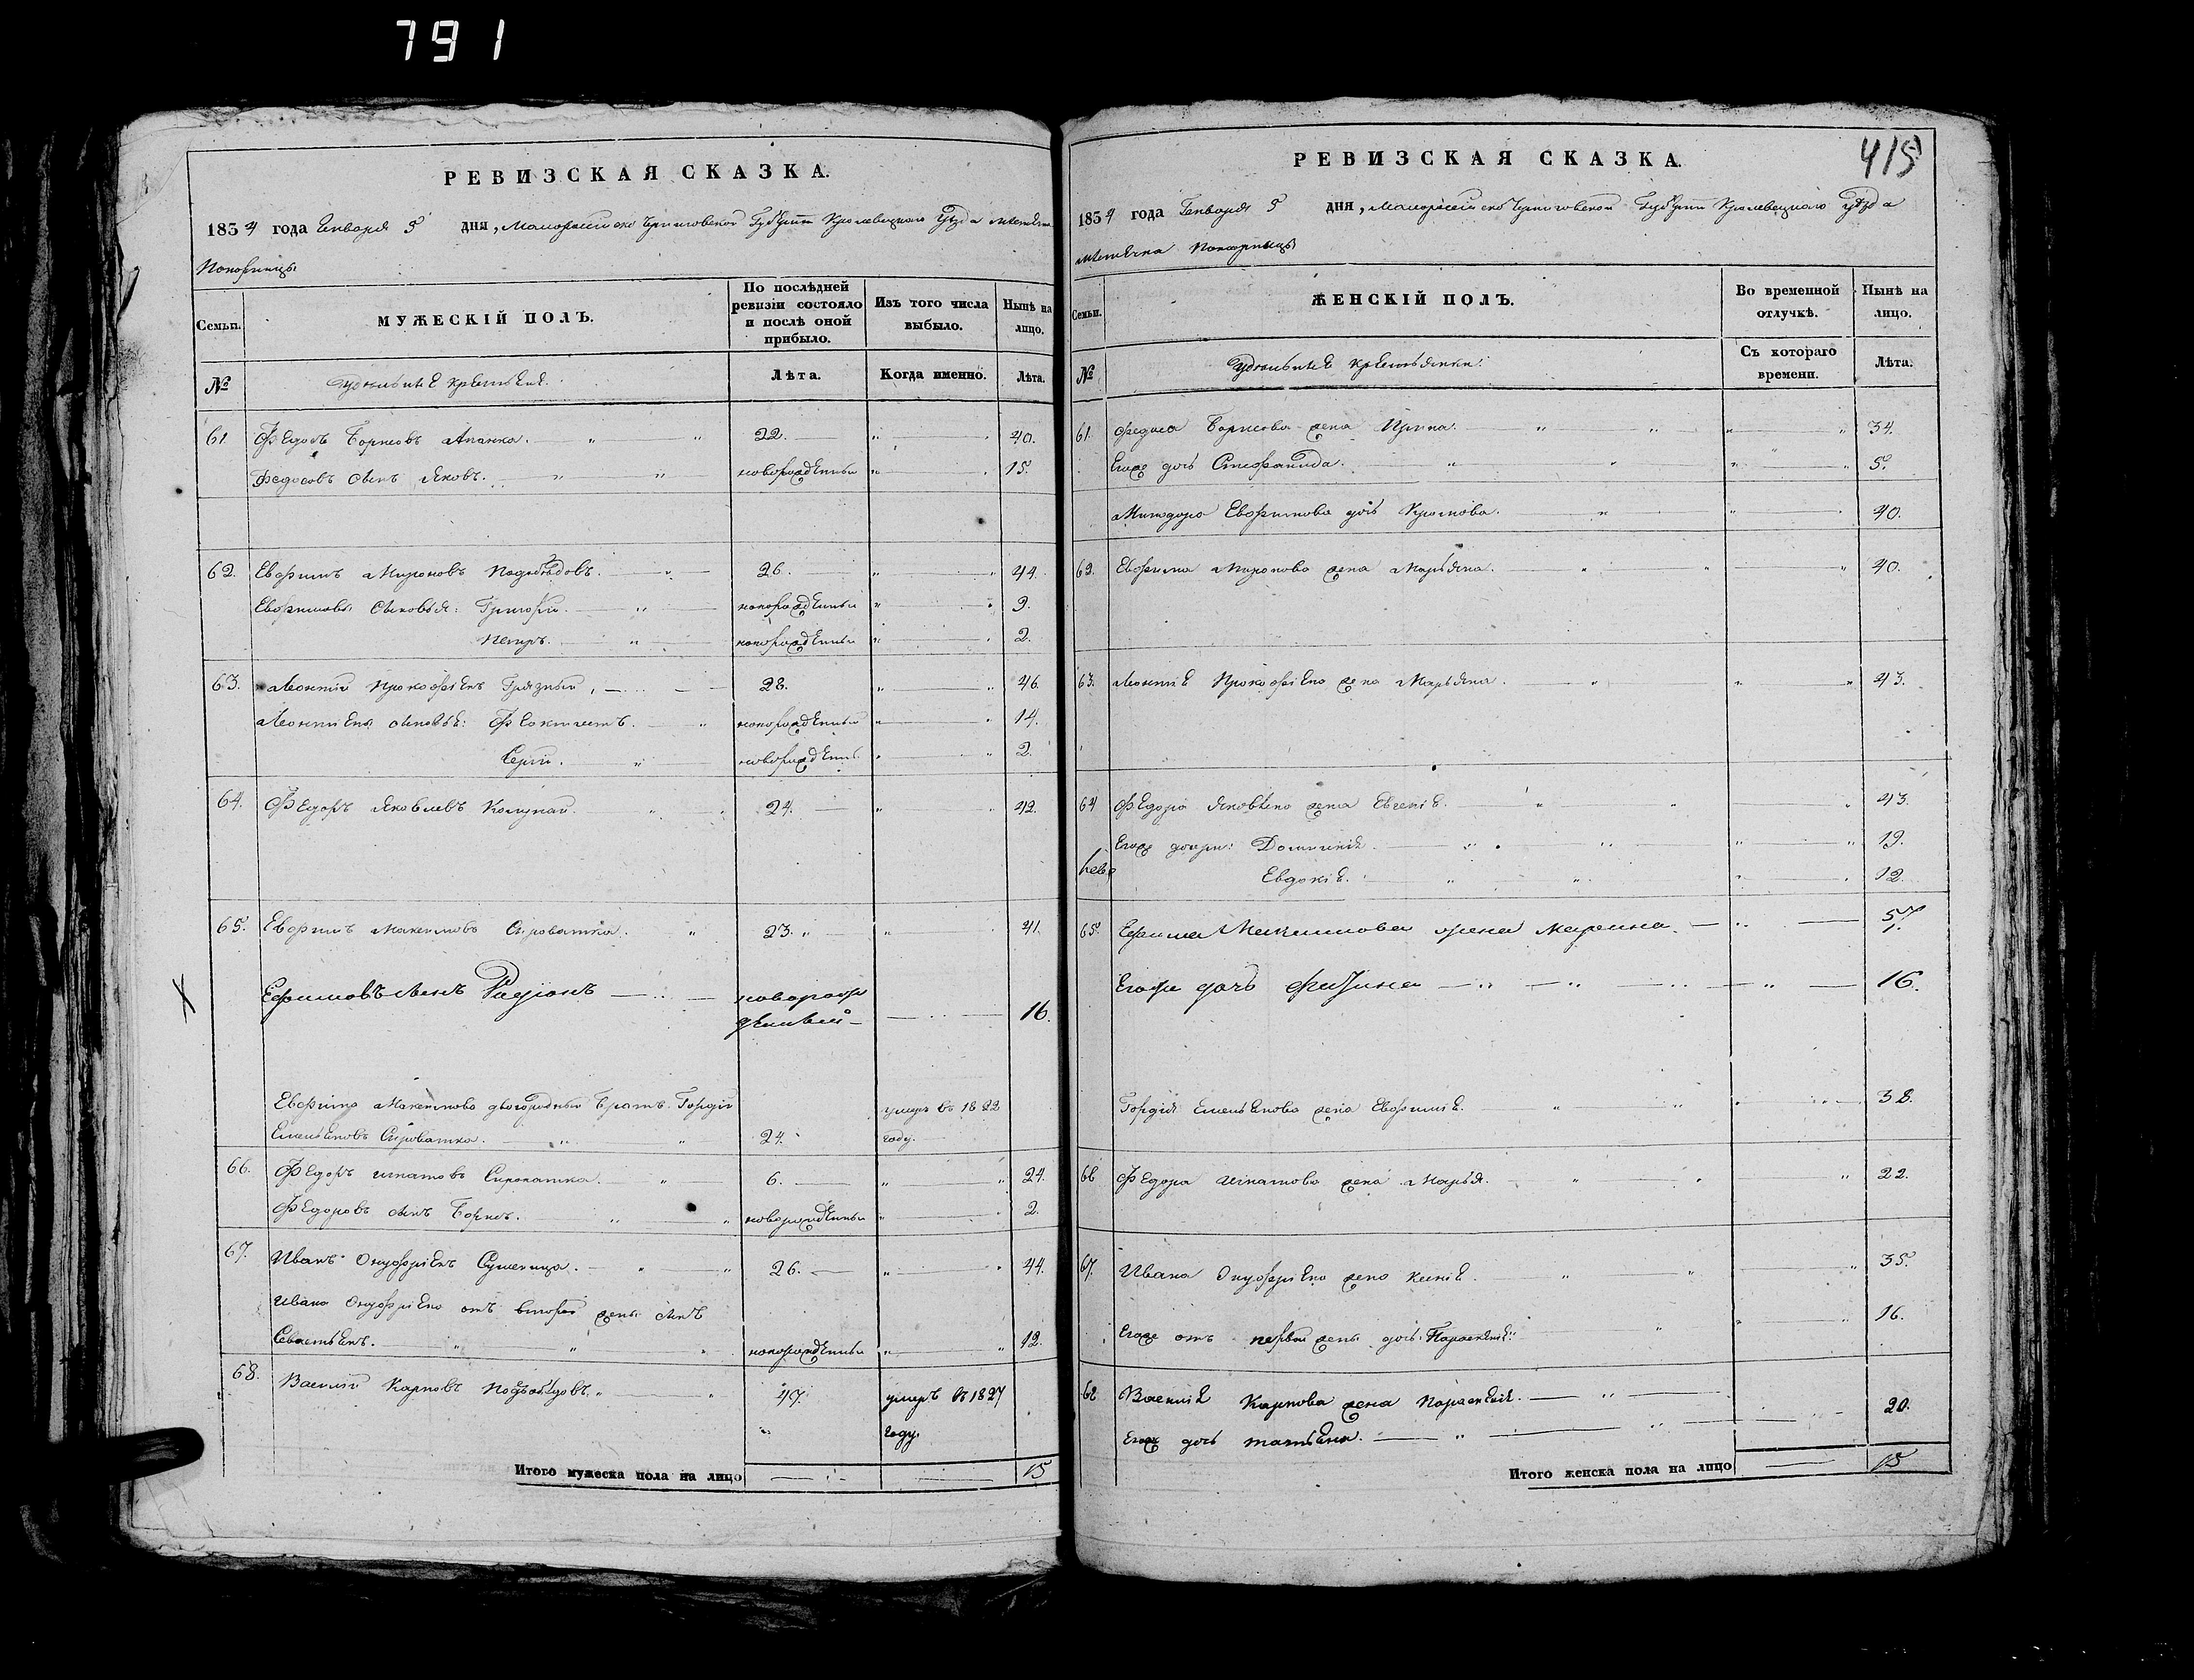 791
РЕВИЗСКАЯ СКАЗКА.
1834 года Генваря 5 дня, Малоросійско Черниговской Губерніи Кролевецкого Уѣзда мѣстечка
Понорницы
Семьи.
МУЖЕСКІЙ ПОЛЪ.
По послѣдней ревизіи состояло и послѣ оной прибыло.
Изъ того числа выбыло.
Нынѣ на лицо.
№
Удѣльные крестьяне.
Лѣта.
Когда именно.
Лѣта.
61. Федосъ Борисовъ 22. 40.
Федосовъ сынъ Яковъ. новорожденный 15.
62. Евфимъ Мироновъ 26. 44.
Евфимовы сыновья: Григорій. новорожденный 9.
Петръ. новорожденный 2.
63. Леонтій Прокофіевъ Грязный, 28. 46.
Леонтіевы сыновья: Феоктистъ. новорожденный 14.
Сергій. новорожденный 2.
64. Федоръ Яковлевъ 24. 42.
65. Евфимъ Максимовъ Сыроватка. 23. 41.
Ефимовъ сынъ Радіонъ новорож
денный 16.
Евфима Максимова двоюродный братъ Гордій умеръ въ 1822
Емельяновъ Сыроватка. 24. году.
66. Федоръ Игнатовъ Сыроватка. 6. 24.
Федоровъ сынъ Борисъ. новорожденный 2.
67. Иванъ Онуфріевъ 26. 44.
Ивана Онуфріева отъ второй жены сынъ
Севастьянъ. новорожденный 12.
68. Василій Карповъ 47. умеръ въ 1827
году.
Итого мужеска пола на лицо 15
415
РЕВИЗСКАЯ СКАЗКА.
1834 года Генваря 5 дня, Малоросійско Черниговской Губерніи Кролевецкого Уѣзда
мѣстечка Понорницы
Семьи.
ЖЕНСКІЙ ПОЛЪ.
Во временной отлучкѣ.
Нынѣ на лицо.
№
Удѣльные крестьянки.
Съ котораго времени.
Лѣта.
61. Федоса Борисова жена Ирина. 34.
Егоже дочь Стефанида. 5.
Митодора Евфимова дочь 40.
62. Евфима Миронова жена Марьяна. 40.
63. Леонтія Прокофіева жена Марьяна. 43.
64 Федора Яковлева жена Евгенія. 43.
Егоже дочери: Доминикія 19.
Евдокія. 12.
65. Ефима Максимова жена Марина. 57.
Егоже дочь 16.
Гордія Емельянова жена Евфимія. 38.
66 Федора Игнатова жена Марья. 22.
67. Ивана Онуфріева жена Ксенія. 35.
Егоже отъ первой жены дочь Параскевія 16.
68 Василія Карпова жена Параскевія.
Егоже дочь Татьяна. 20.
Итого женска пола на лицо 15